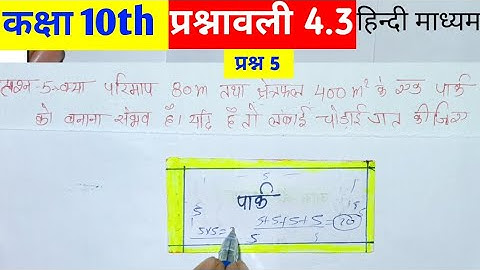 कक्षा 10th प्रश्नावली 4.3 हिन्दी माध्यम
प्रश्न 5
प्रश्न-5 क्या परिमाप 80m तथा क्षेत्रफल 400m² के एक पार्क
को बनाना संभव है। यदि है तो लंबाई चौड़ाई ज्ञात कीजिए
पार्क
5
5+5+5+5=20
5×5=
5